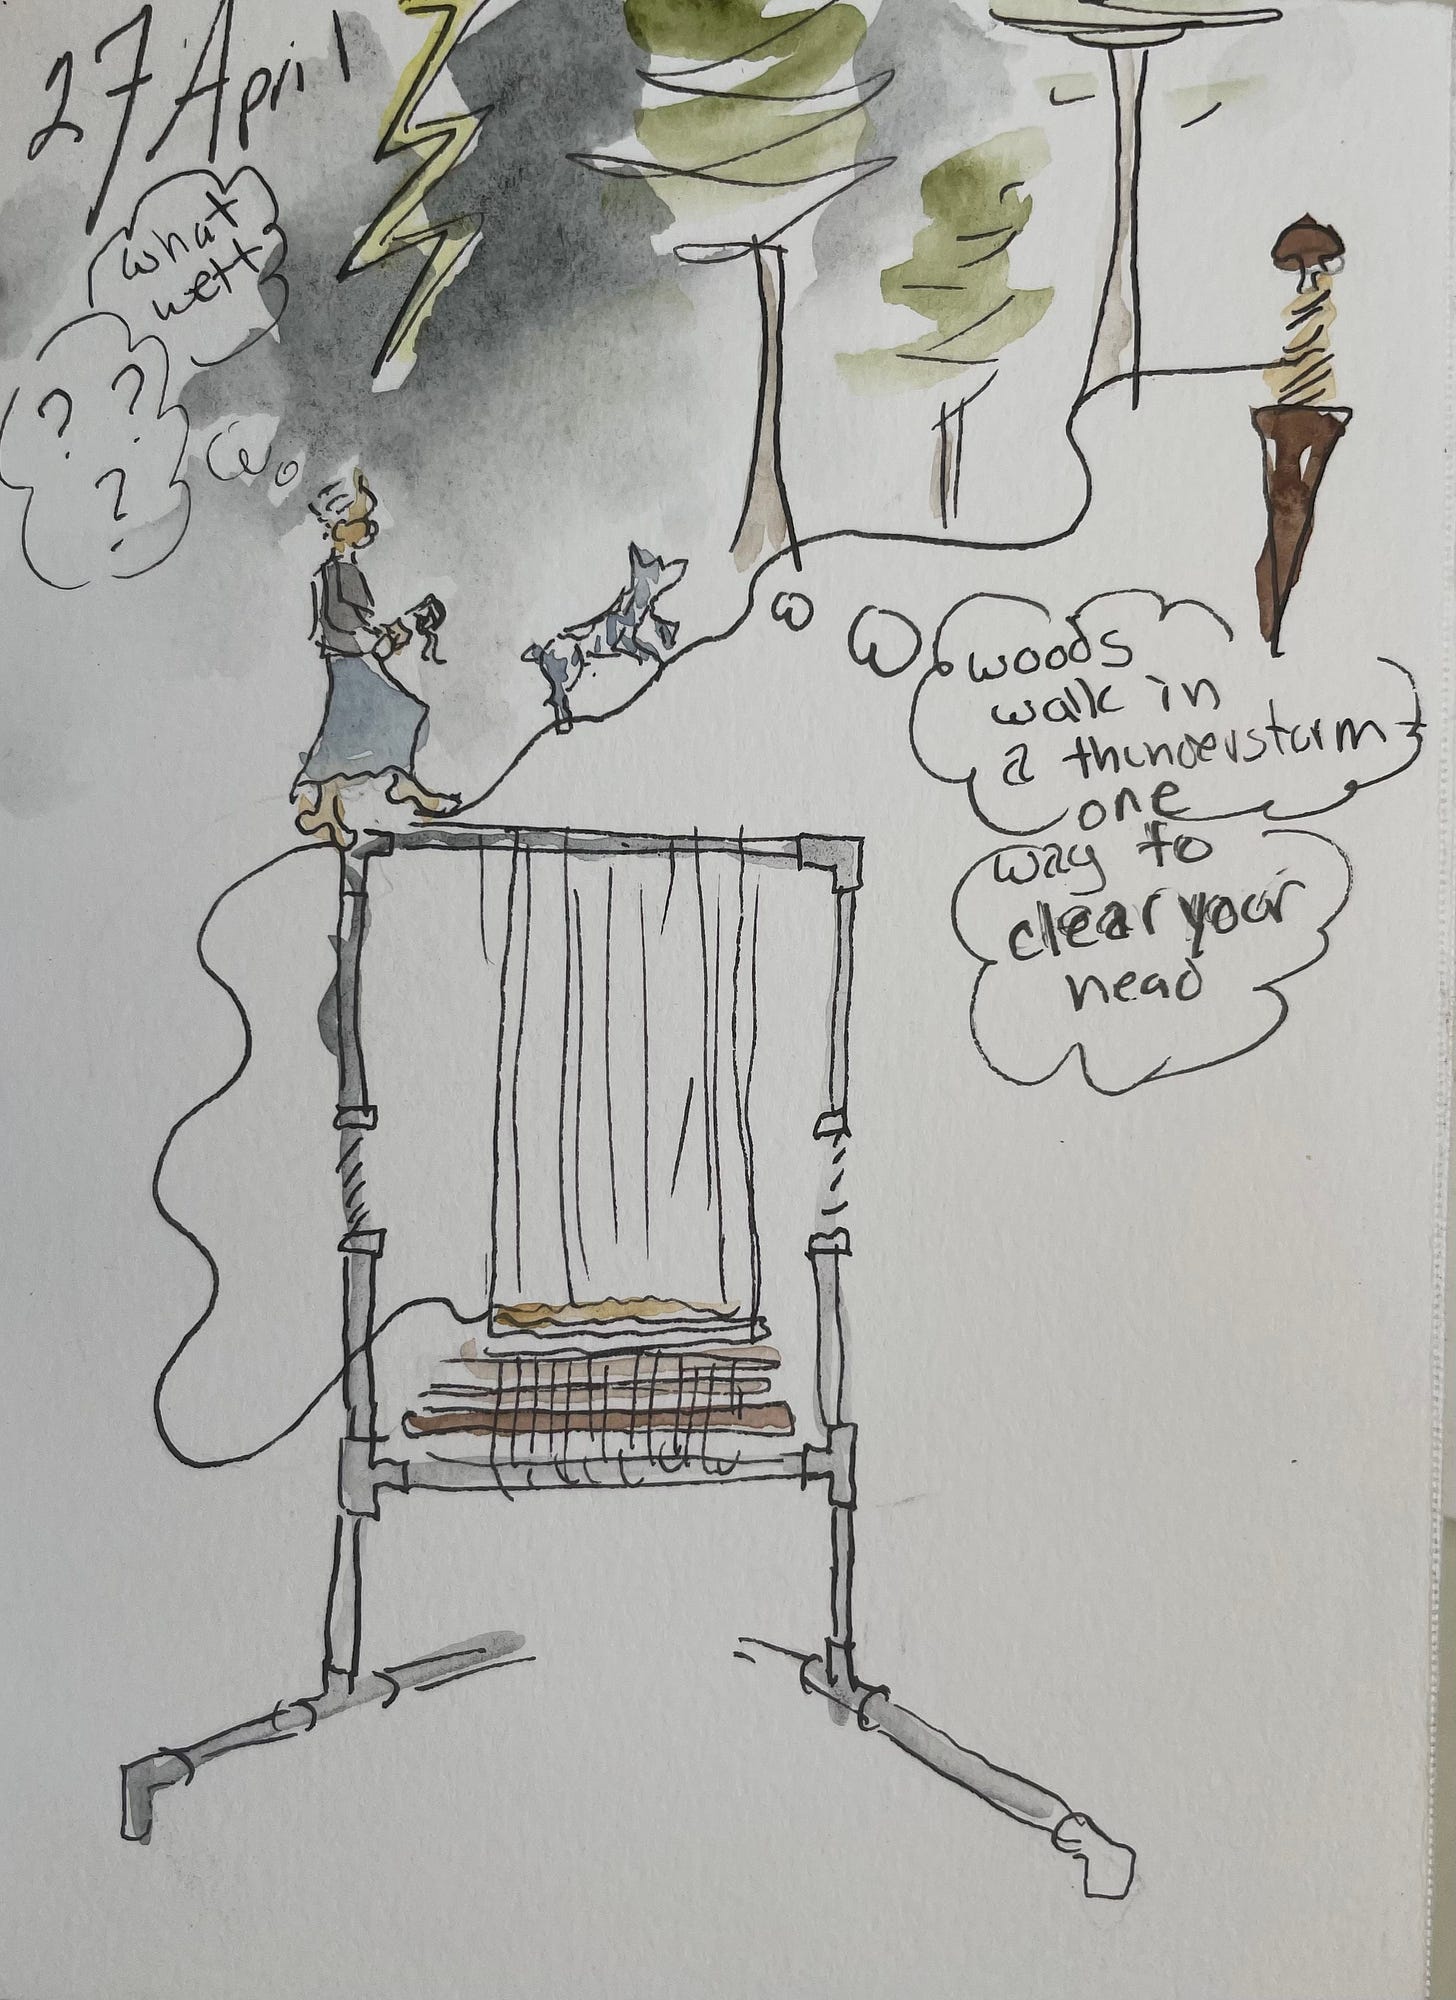 27 April
what
weft
? ?
?
woods
walk in
a thunderstorm
one
way to
clear your
head